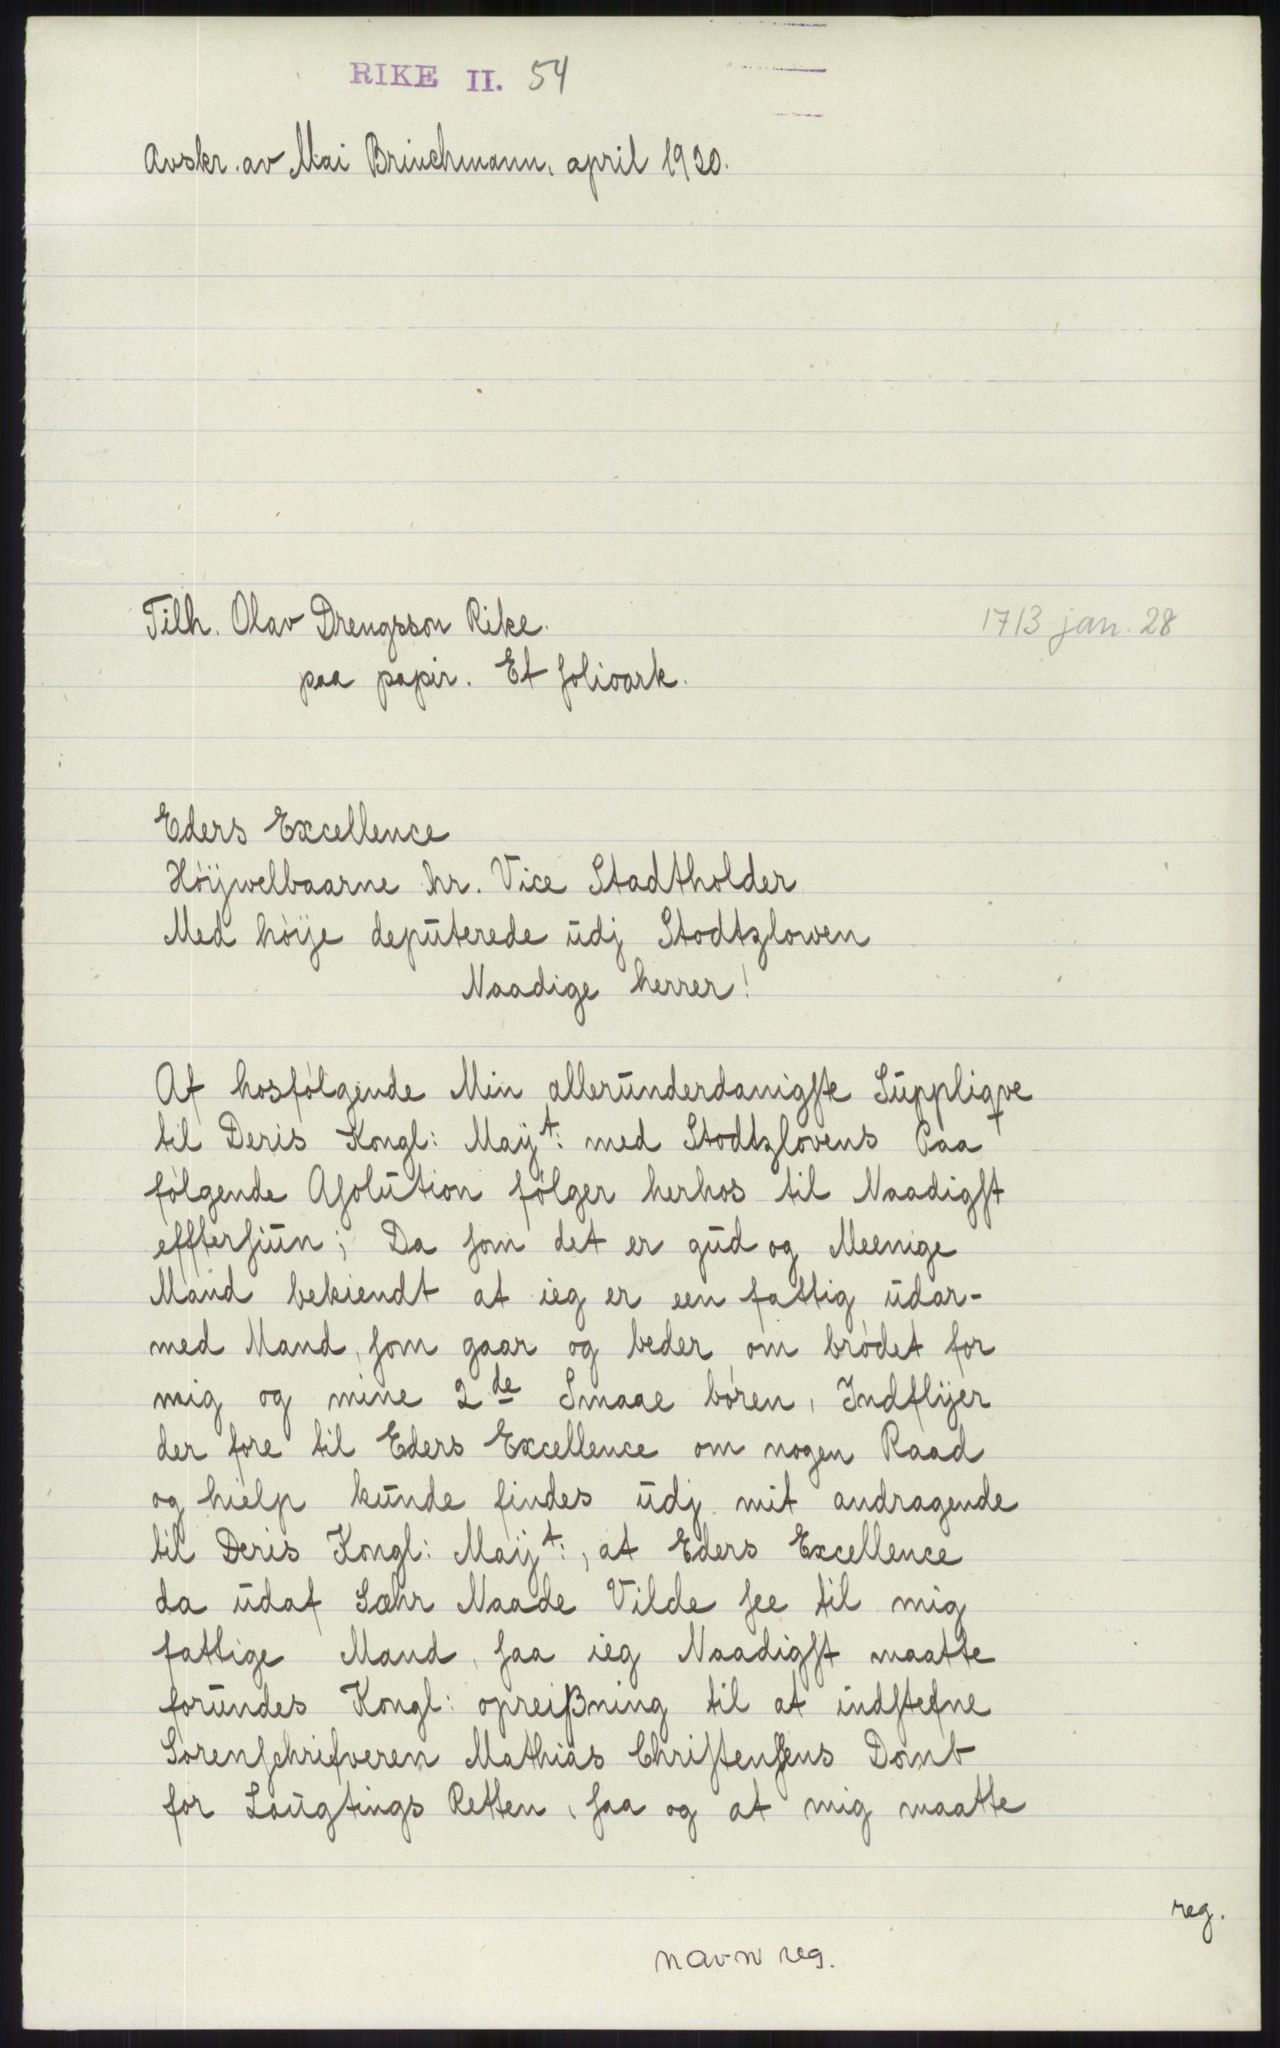 RIKE II. 54
Avskr. av Mai Brinchmann, april 1920.
Tilh. Olav Drengsson Rike.
1713 jan. 28
paa papir. Et folioark.
Eders Excellence
Høÿwelbaarne hr. Vice Stadtholder
Med høÿe deputerede udj Stodtzlowen
Naadige herrer!
Af hosfølgende Min allerunderdanigste Suppliqve
til Deris Kongl: Maÿt: med Stodtzlovens Paa
følgende Asolution følger herhos til Naadigst
efftersiun; Da som det er gud og Meenige
Mand bekiendt at ieg er een fattig udar-
med Mand, som gaar og beder om brødet for
mig og mine 2de Smaae børen, Indflÿer
der fore til Eders Excellence om nogen Raad
og hielp kunde findes udj mit andragende
til Deris Kongl: Maÿt:, at Eders Excellence
da udaf Sæhr Naade Vilde see til mig
fattige Mand, saa ieg Naadigst maatte
forundes Kongl: opreißning til at indstefne
Sorenschrifveren Mathias Christensens Domb
for Laugtings Retten, saa og at mig maatte
reg.
navn reg.